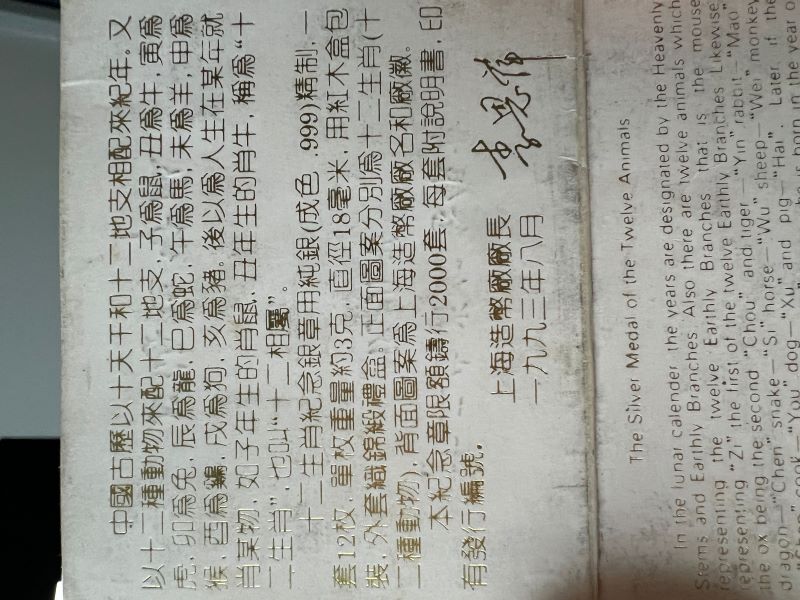 中國古歷以十天干和十二地支相配來紀年。又
以十二種動物來配十二地支，子爲鼠，丑爲牛，寅爲
虎，卯爲兔，辰爲龍，巳爲蛇，午爲馬，未爲羊，申爲
猴，酉爲鷄，戌爲狗，亥爲豬。後以爲人生在某年就
肖某物，如子年生的肖鼠，丑年生的肖牛，稱爲“十
二生肖”，也叫“十二相屬”。
十二生肖紀念銀章用純銀(成色 .999)精制，一
套12枚，單枚重量約3克，直徑18毫米，用紅木盒包
裝，外套織錦緞禮盒。正面圖案分別爲十二生肖(十
二種動物)，背面圖案爲上海造幣廠廠名和廠徽。
本紀念章限額鑄行2000套，每套附說明書，印
有發行編號。
上海造幣廠廠長
一九九三年八月
The Silver Medal of the Twelve Animals
In the lunar calender the years are designated by the Heavenly
Stems and Earthly Branches Also there are twelve animals which
representing the twelve Earthly Branches that is the mouse
representing "Zi" the first of the twelve Earthly Branches Likewise
the ox being the second "Chou" and tiger—"Yin" rabbit—"Mao"
dragon—"Chen" snake—"Si" horse—"Wu" sheep—"Wei" monkey
cook—"You" dog—"Xu" and pig—"Hai". Later, if the
he is born in the year of